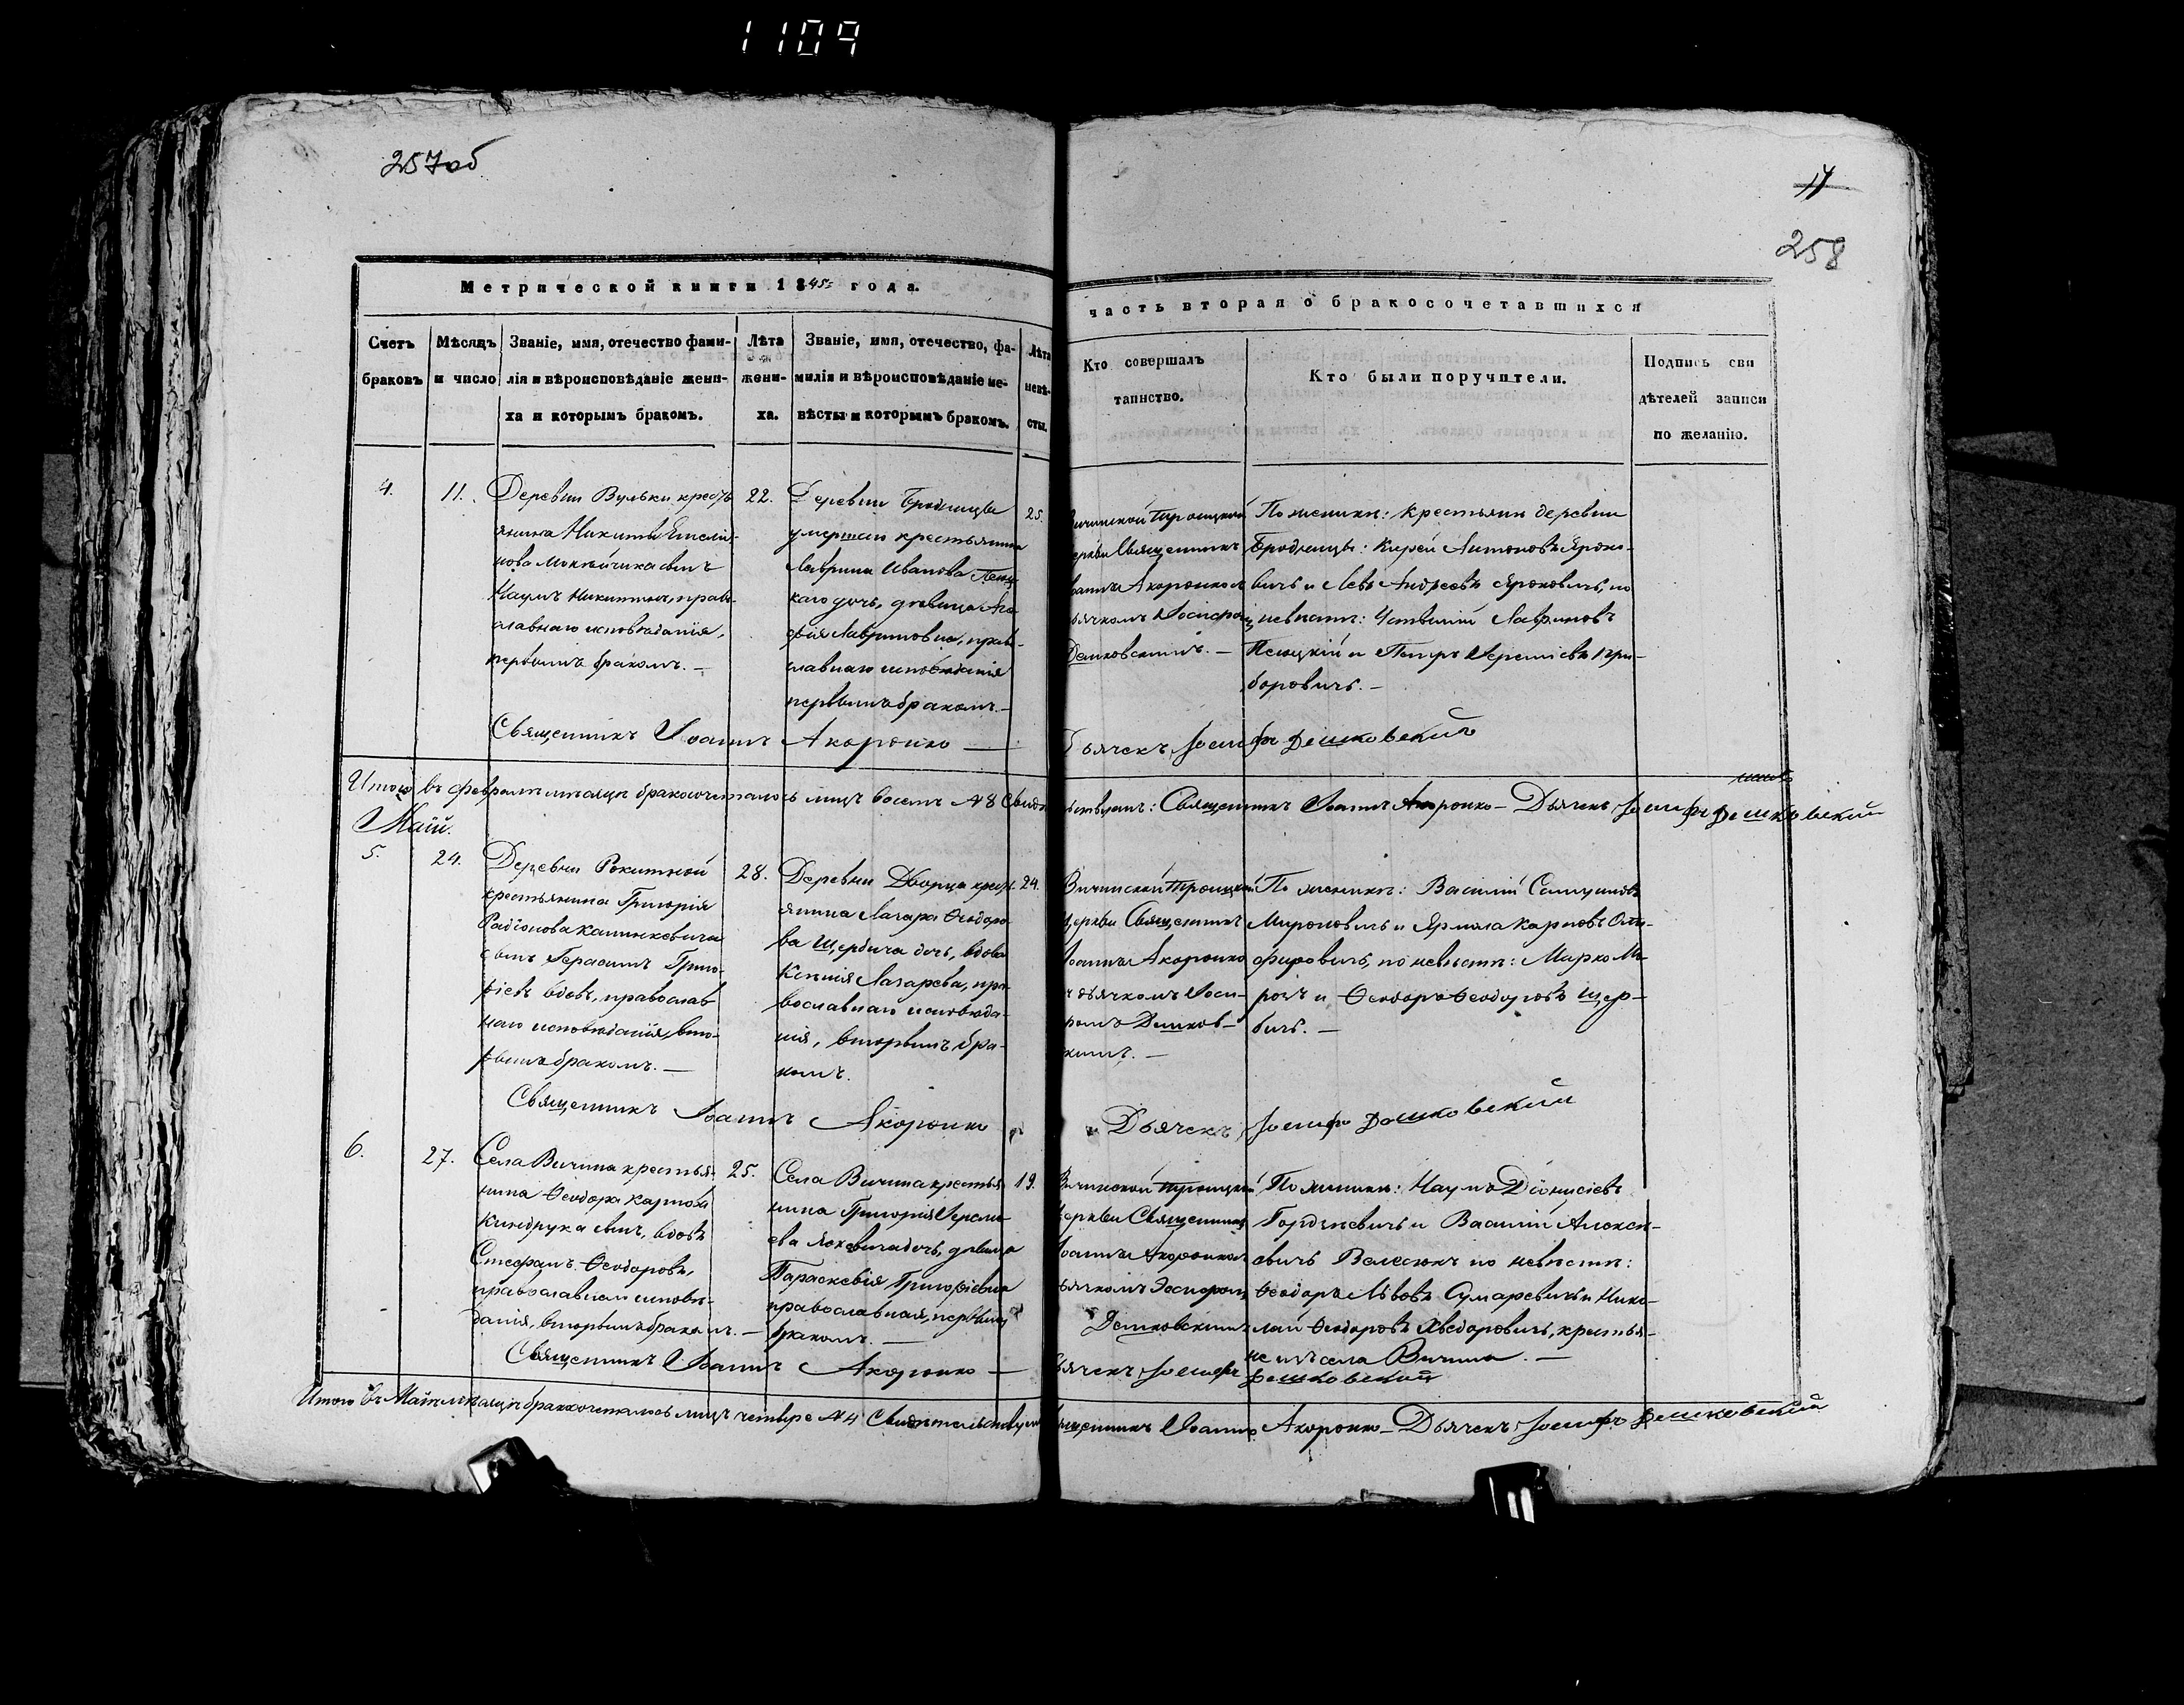 1109
257об
14
258
Метрической книги 1845 года.
часть вторая о бракосочетавшихся
Счетъ браковъ
Мѣсяцъ и число
Званіе, имя, отечество фами-
лія и вѣроисповѣданіе жени-
ха и которымъ бракомъ.
Лѣта
жени-
ха.
Званіе, имя, отечество, фа-
милія и вѣроисповѣданіе не-
вѣсты и которымъ бракомъ.
Лѣта
невѣ-
сты.
Кто совершалъ
таинство.
Кто были поручители.
Подпись сви
дѣтелей записи
по желанію.
4.
11.
Деревни Вульки кресть
янина Никиты
сынъ
Наумъ Никитинъ, право-
славнаго исповѣданія,
первымъ бракомъ. —
22.
Деревни Бродницы
умершаго крестьянина
Лаврина Иванова
дочь, дѣвица Ага
фія Лавринова, право-
славнаго исповѣданія
первымъ бракомъ. —
25.
Вичинской Троицкой
церкви Священникъ
Іоаннъ Акоронко съ
дьячкомъ Іосифомъ
Дешковскимъ. —
По женихѣ: крестьяне деревни
Бродницы: Кирей Антоновъ Яроко-
вичъ и Левъ Андреевъ Яроковичъ, по
невѣстѣ: Лавриновъ
и Петръ Гри-
боровичъ. —
Священникъ Іоаннъ Акоронко —
Дьячекъ Іосифъ Дешковскій
Итого въ февралѣ мѣсяцѣ бракосочеталось лицъ восемь №8 Свидѣтельствуемъ: Священникъ Іоаннъ Акоронко — Дьячекъ Іосифъ Дешковскій
Май.
5.
24.
Деревни Рокитной
крестьянина Григорія
Радіонова Калинкевича
сынъ Герасимъ Григо-
ріевъ вдовъ, православ
наго исповѣданія, вто-
рымъ бракомъ. —
28.
Деревни Дворца крест-
янина Лазаря Ѳеодоро
ва Щербича дочь, вдова
Ксенія Лазарева, пра-
вославнаго исповѣда-
нія, вторымъ бра-
комъ.
24.
Вичинской Троицкой
церкви Священникъ
Іоаннъ Акоронко
съ дьячкомъ Іоси-
фомъ Дешков-
скимъ. —
По женихѣ: Василій
Мироновичъ и Ярмола Карповъ Они-
фировичъ, по невѣстѣ: Марко Ми-
и Ѳеодоръ Ѳеодоровъ Щер-
бичъ. —
Священникъ Іоаннъ Акоронко
Дьячекъ Іосифъ Дешковскій
6.
27.
Села Вичина крестья-
нина Ѳеодора Карпова
Киндрука сынъ, вдовъ
Стефанъ Ѳеодоровъ,
православнаго исповѣ-
данія, вторымъ бракомъ. —
25.
Села Вичина крестья
нина Григорія
дочь, дѣвица
Параскевія Григоріева
православная, первымъ
бракомъ. —
19.
Вичинской Троицкой
церкви Священникъ
Іоаннъ Акоронко съ
дьячкомъ Іосифомъ
Дешковскимъ
По женихѣ: Наумъ Діонисіевъ
Гордѣевичъ и Василій Алексѣ-
евичъ по невѣстѣ:
Ѳеодоръ Львовъ Сумаревичъ и Нико-
лай Ѳеодоровъ Хведоровичъ, крестья-
не изъ села Вичина. —
Священникъ Іоаннъ Акоронко —
Дьячекъ Іосифъ Дешковскій
Итого въ Маѣ мѣсяцѣ бракосочеталось лицъ четыре №4 Свидѣтельствуемъ Священникъ Іоаннъ Акоронко — Дьячекъ Іосифъ Дешковскій